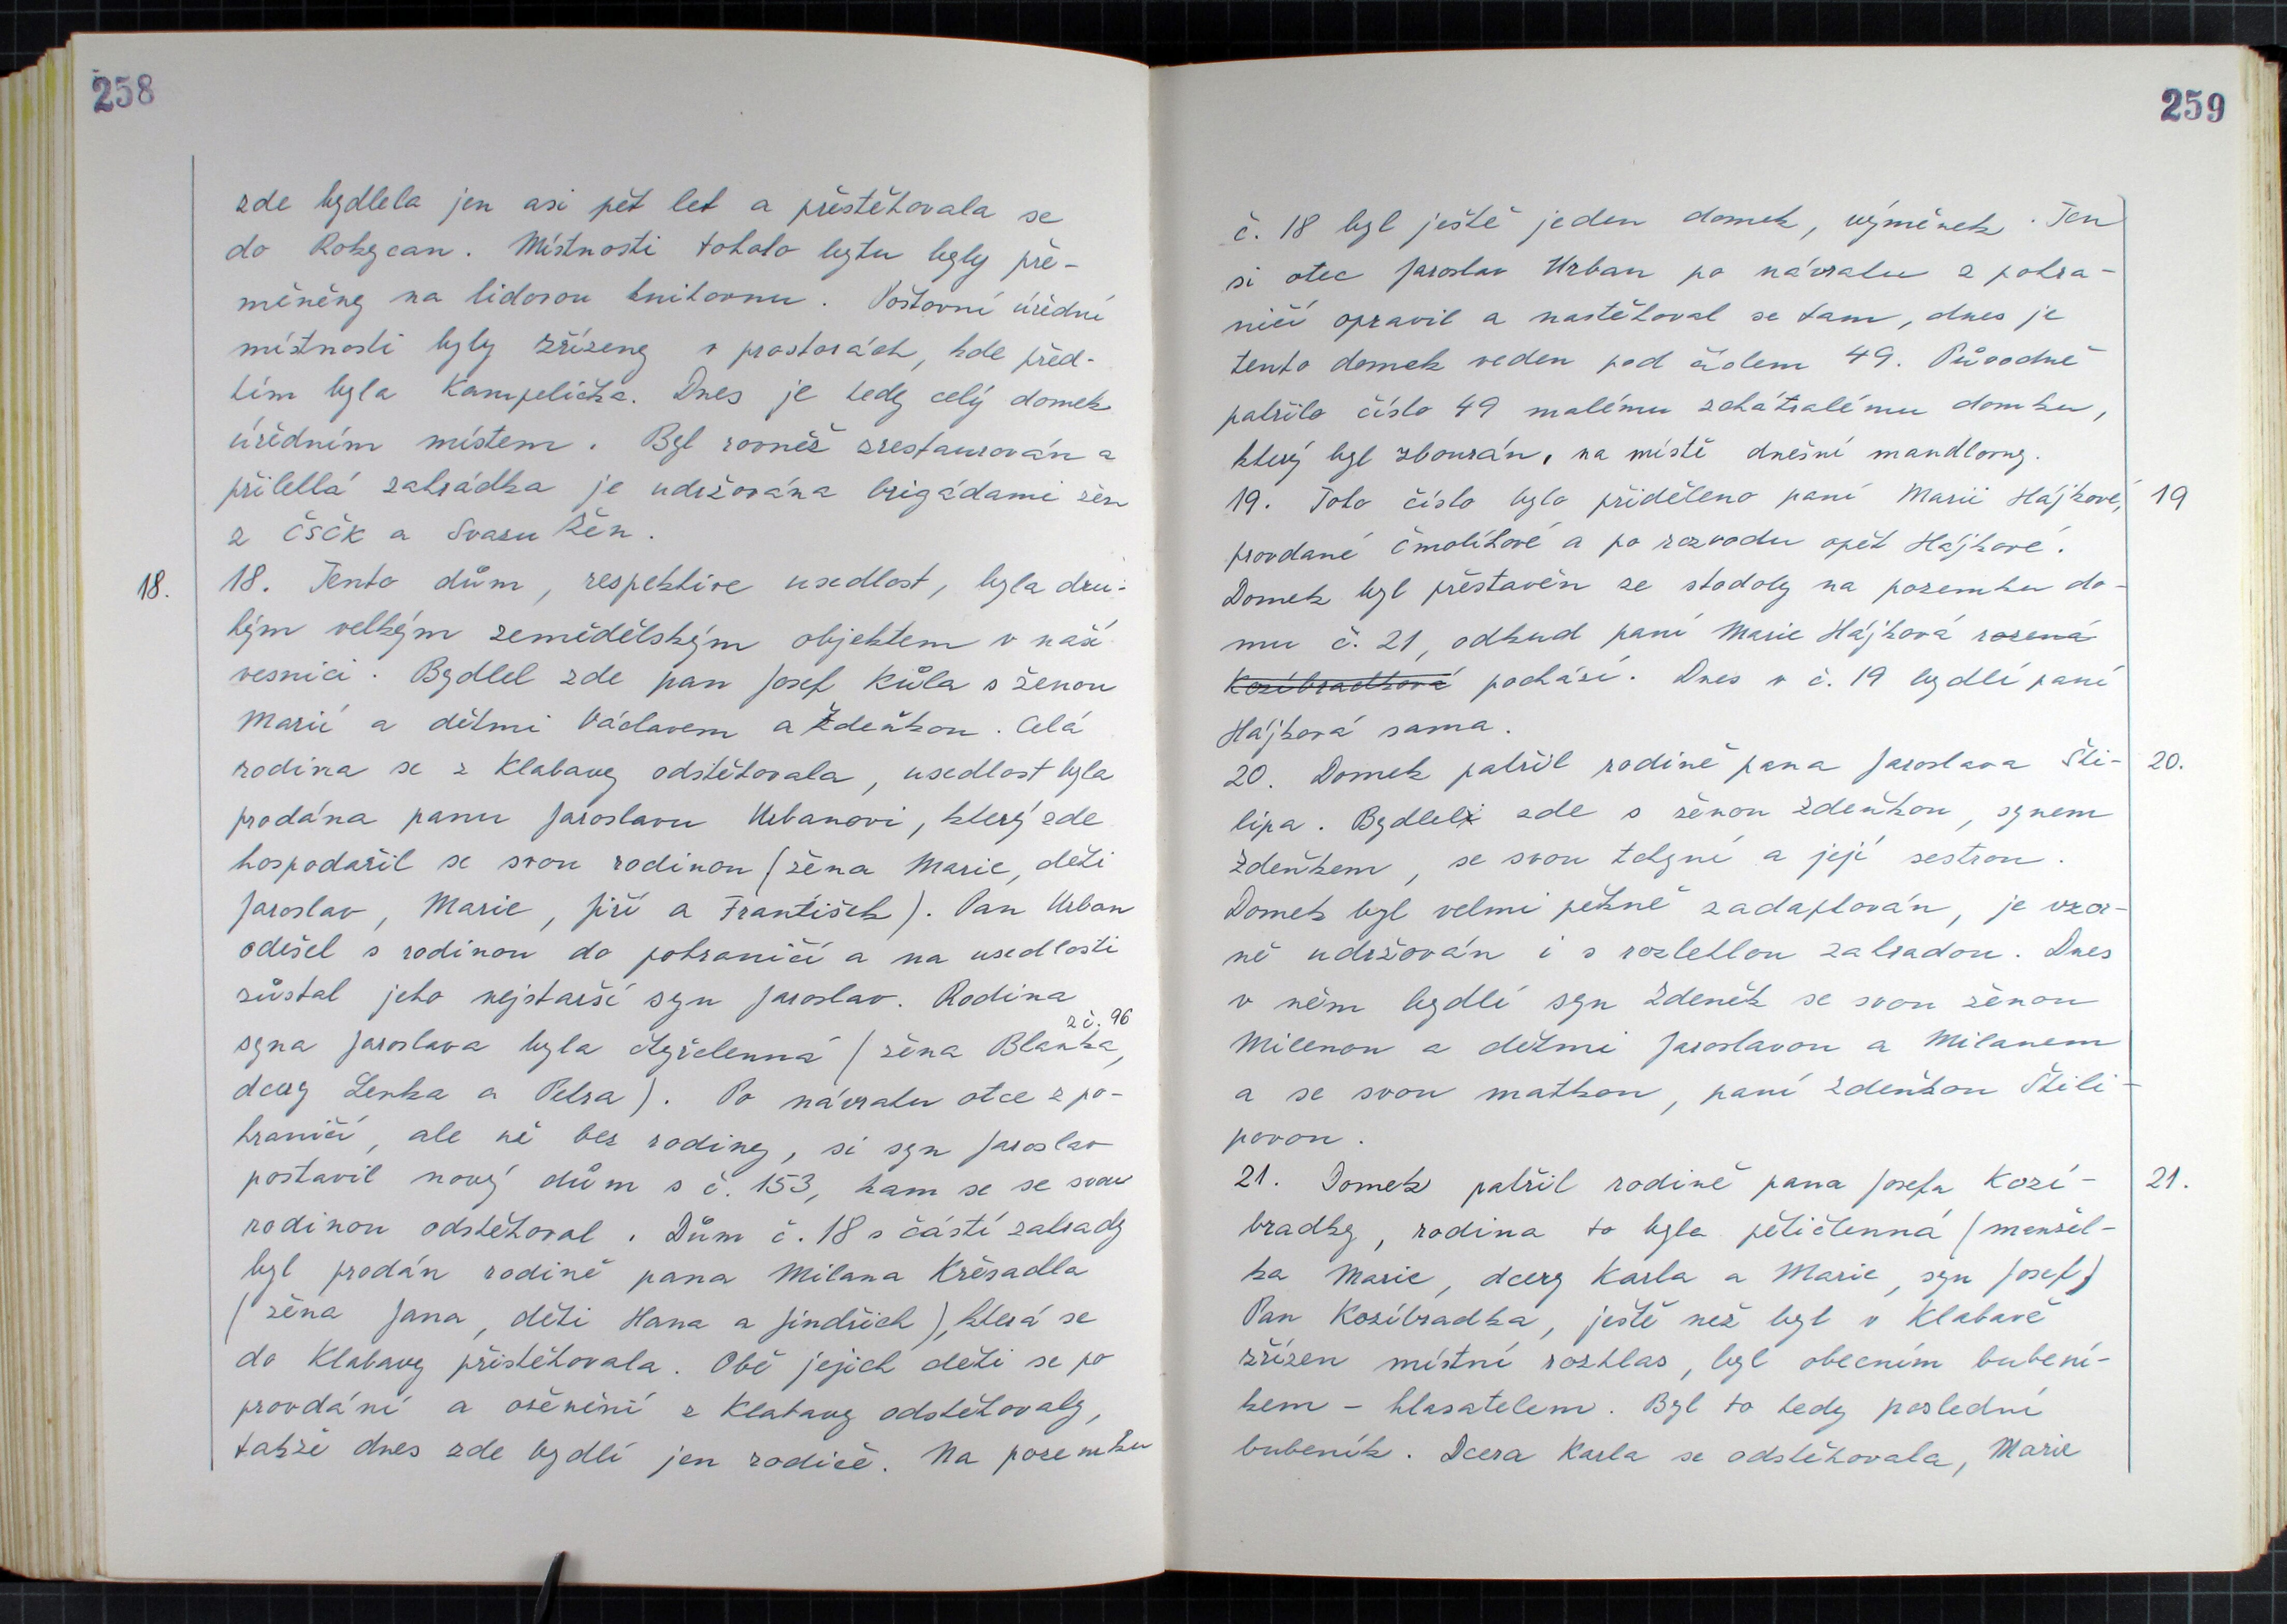 258
zde bydlela jen asi pět let a přestěhovala se
do Rokycan. Místnosti tohoto bytu byly pře-
měněny na lidovou knihovnu. Poštovní úřední
místnosti byly zřízeny v prostorách, kde před-
tím byla Kampelička. Dnes je tedy celý domek
úředním místem. Byl rovněž zrestaurován a
přilehlá zahrádka je udržována brigádami žen
z ČSČK a Svazu žen.
18.
18. Tento dům, respektive usedlost, byla dru-
hým velkým zemědělským objektem v naší
vesnici. Bydlel zde pan Josef Kůla s ženou
Marií a dětmi Václavem a Zdeňkou. Celá
rodina se z Klabavy odstěhovala, usedlost byla
prodána panu Jaroslavu Urbanovi, který zde
hospodařil se svou rodinou (žena Marie, děti
Jaroslav, Marie, Jiří a František). Pan Urban
odešel s rodinou do pohraničí a na usedlosti
zůstal jeho nejstarší syn Jaroslav. Rodina
z č. 96
syna Jaroslava byla čtyřčlenná (žena Blanka,
dcery Lenka a Petra). Po návratu otce z po-
hraničí, ale ne bez rodiny, si syn Jaroslav
postavil nový dům s č. 153, kam se se svou
rodinou odstěhoval. Dům č. 18 s částí zahrady
byl prodán rodině pana Milana Křesadla
(žena Jana, děti Hana a Jindřich), která se
do Klabavy přistěhovala. Obě jejich děti se po
provdání a oženění z Klabavy odstěhovaly,
takže dnes zde bydlí jen rodiče. Na pozemku
259
č. 18 byl ještě jeden domek, výměnek. Ten
si otec Jaroslav Urban po návratu z pohra-
ničí opravil a nastěhoval se tam, dnes je
tento domek veden pod číslem 49. Původně
patřilo číslo 49 malému zchátralému domku,
který byl zbourán, na místě dnešní mandlovny.
19. Toto číslo bylo přiděleno paní Marii Hájkové, 19
provdané Čmolíkové a po rozvodu opět Hájkové.
Domek byl přestavěn ze stodoly na pozemku do-
mu č. 21, odkud paní Marie Hájková rozená
Kozíbradková pochází. Dnes v č. 19 bydlí paní
Hájková sama.
20. Domek patřil rodině pana Jaroslava Šti- 20.
lipa. Bydlel zde s ženou Zdeňkou, synem
Zdeňkem, se svou tchyní a její sestrou.
Domek byl velmi pěkně zadaptován, je vzor-
ně udržován i s rozlehlou zahradou. Dnes
v něm bydlí syn Zdeněk se svou ženou
Milenou a dětmi Jaroslavou a Milanem
a se svou matkou, paní Zdeňkou Štili-
povou.
21. Domek patřil rodině pana Josefa Kozí- 21.
bradky, rodina to byla pětičlenná (manžel-
ka Marie, dcery Karla a Marie, syn Josef)
Pan Kozíbradka, ještě než byl v Klabavě
zřízen místní rozhlas, byl obecním bubení-
kem - hlasatelem. Byl to tedy poslední
bubeník. Dcera Karla se odstěhovala, Marie